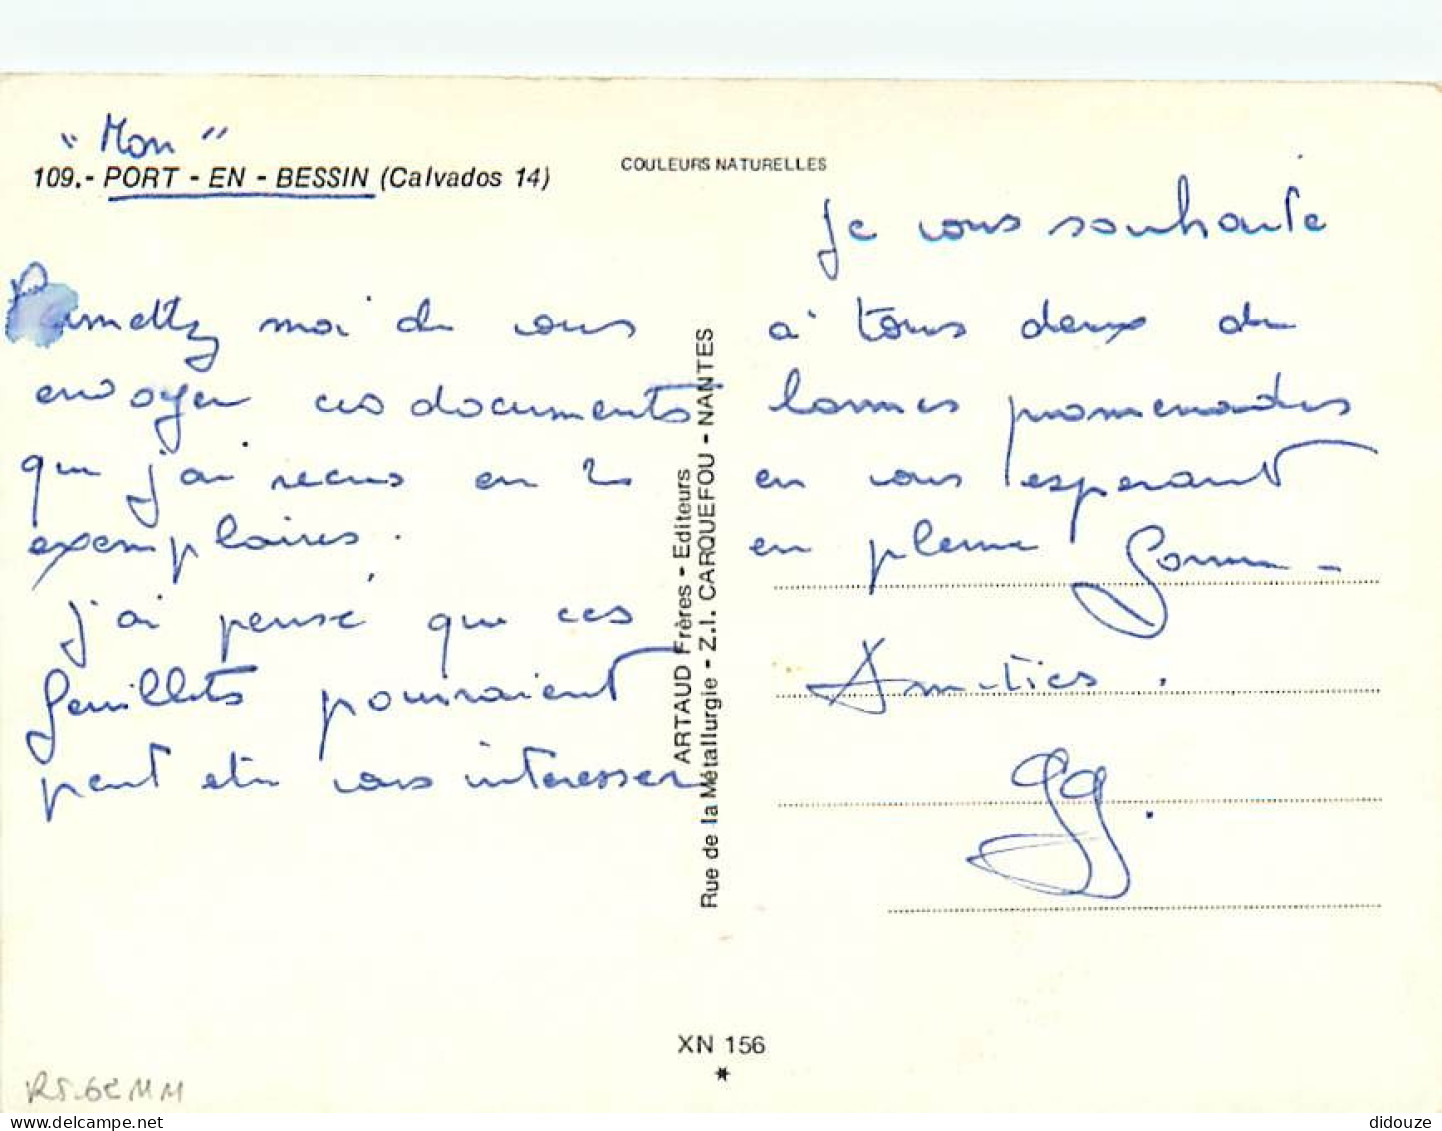 " Mon "
109.- PORT - EN - BESSIN (Calvados 14)
COULEURS NATURELLES
Permettez moi de vous
envoyer ces documents
que j'ai recus en 2
exemplaires.
j'ai pensé que ces
feuillets pourraient
peut etre vous interesser
ARTAUD Frères - Editeurs
Rue de la Métallurgie - Z.I. CARQUEFOU - NANTES
je vous souhaite
à tous deux de
bonnes promenades
en vous esperant
en pleine forme -
Amitiés.
XN 156
didouze